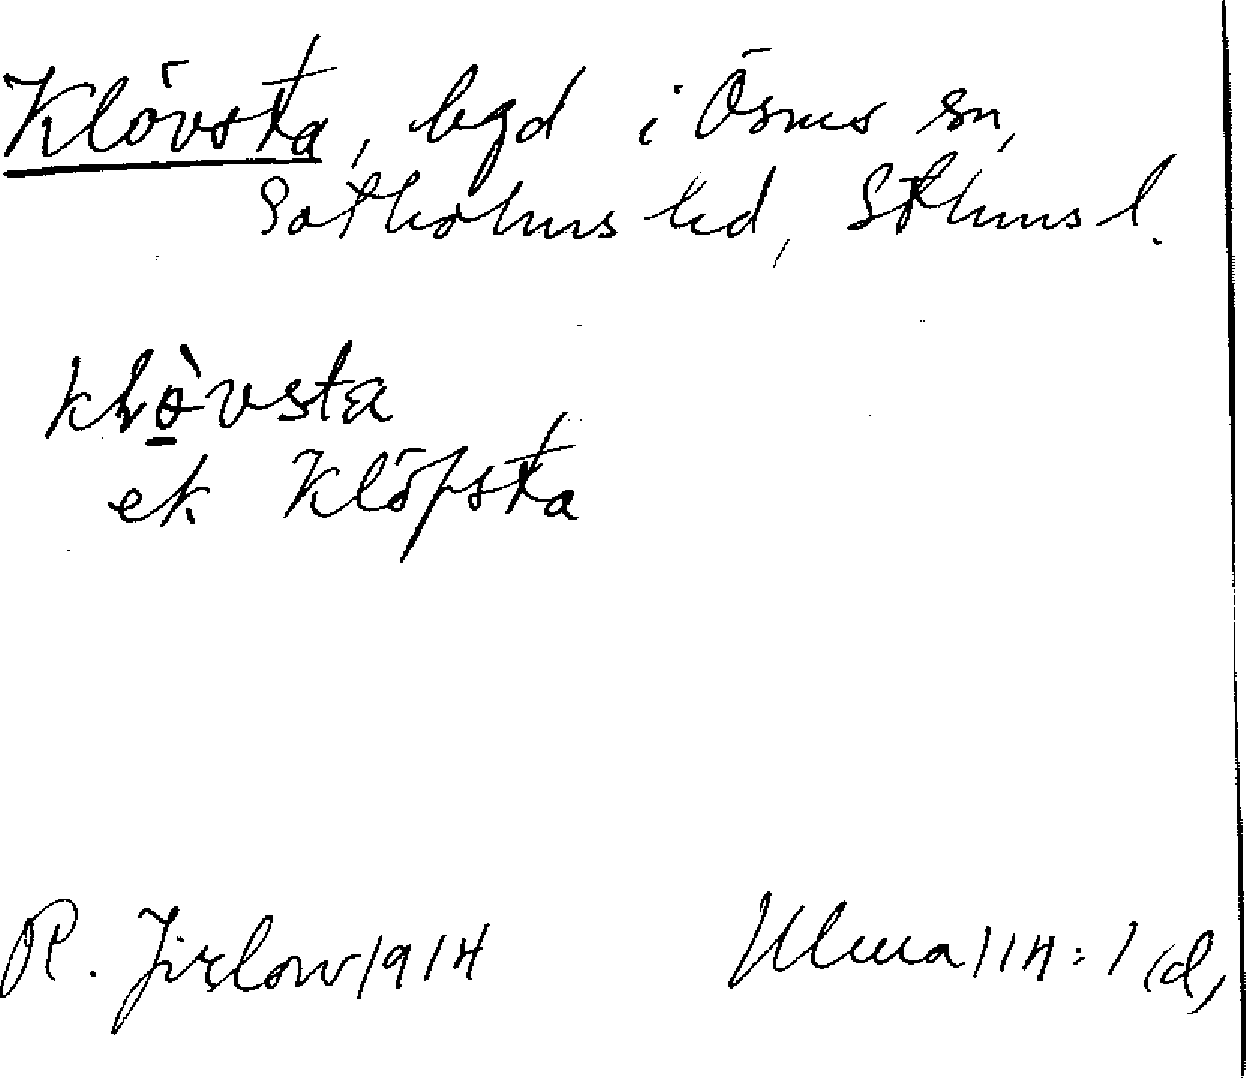 Klövsta, bgd i Ösmo sn,
Sotholms hd, Sthms l.
klö̀vsta
ek. Klöpsta
R. Jirlow 1914
Ulma 114:1 (d)